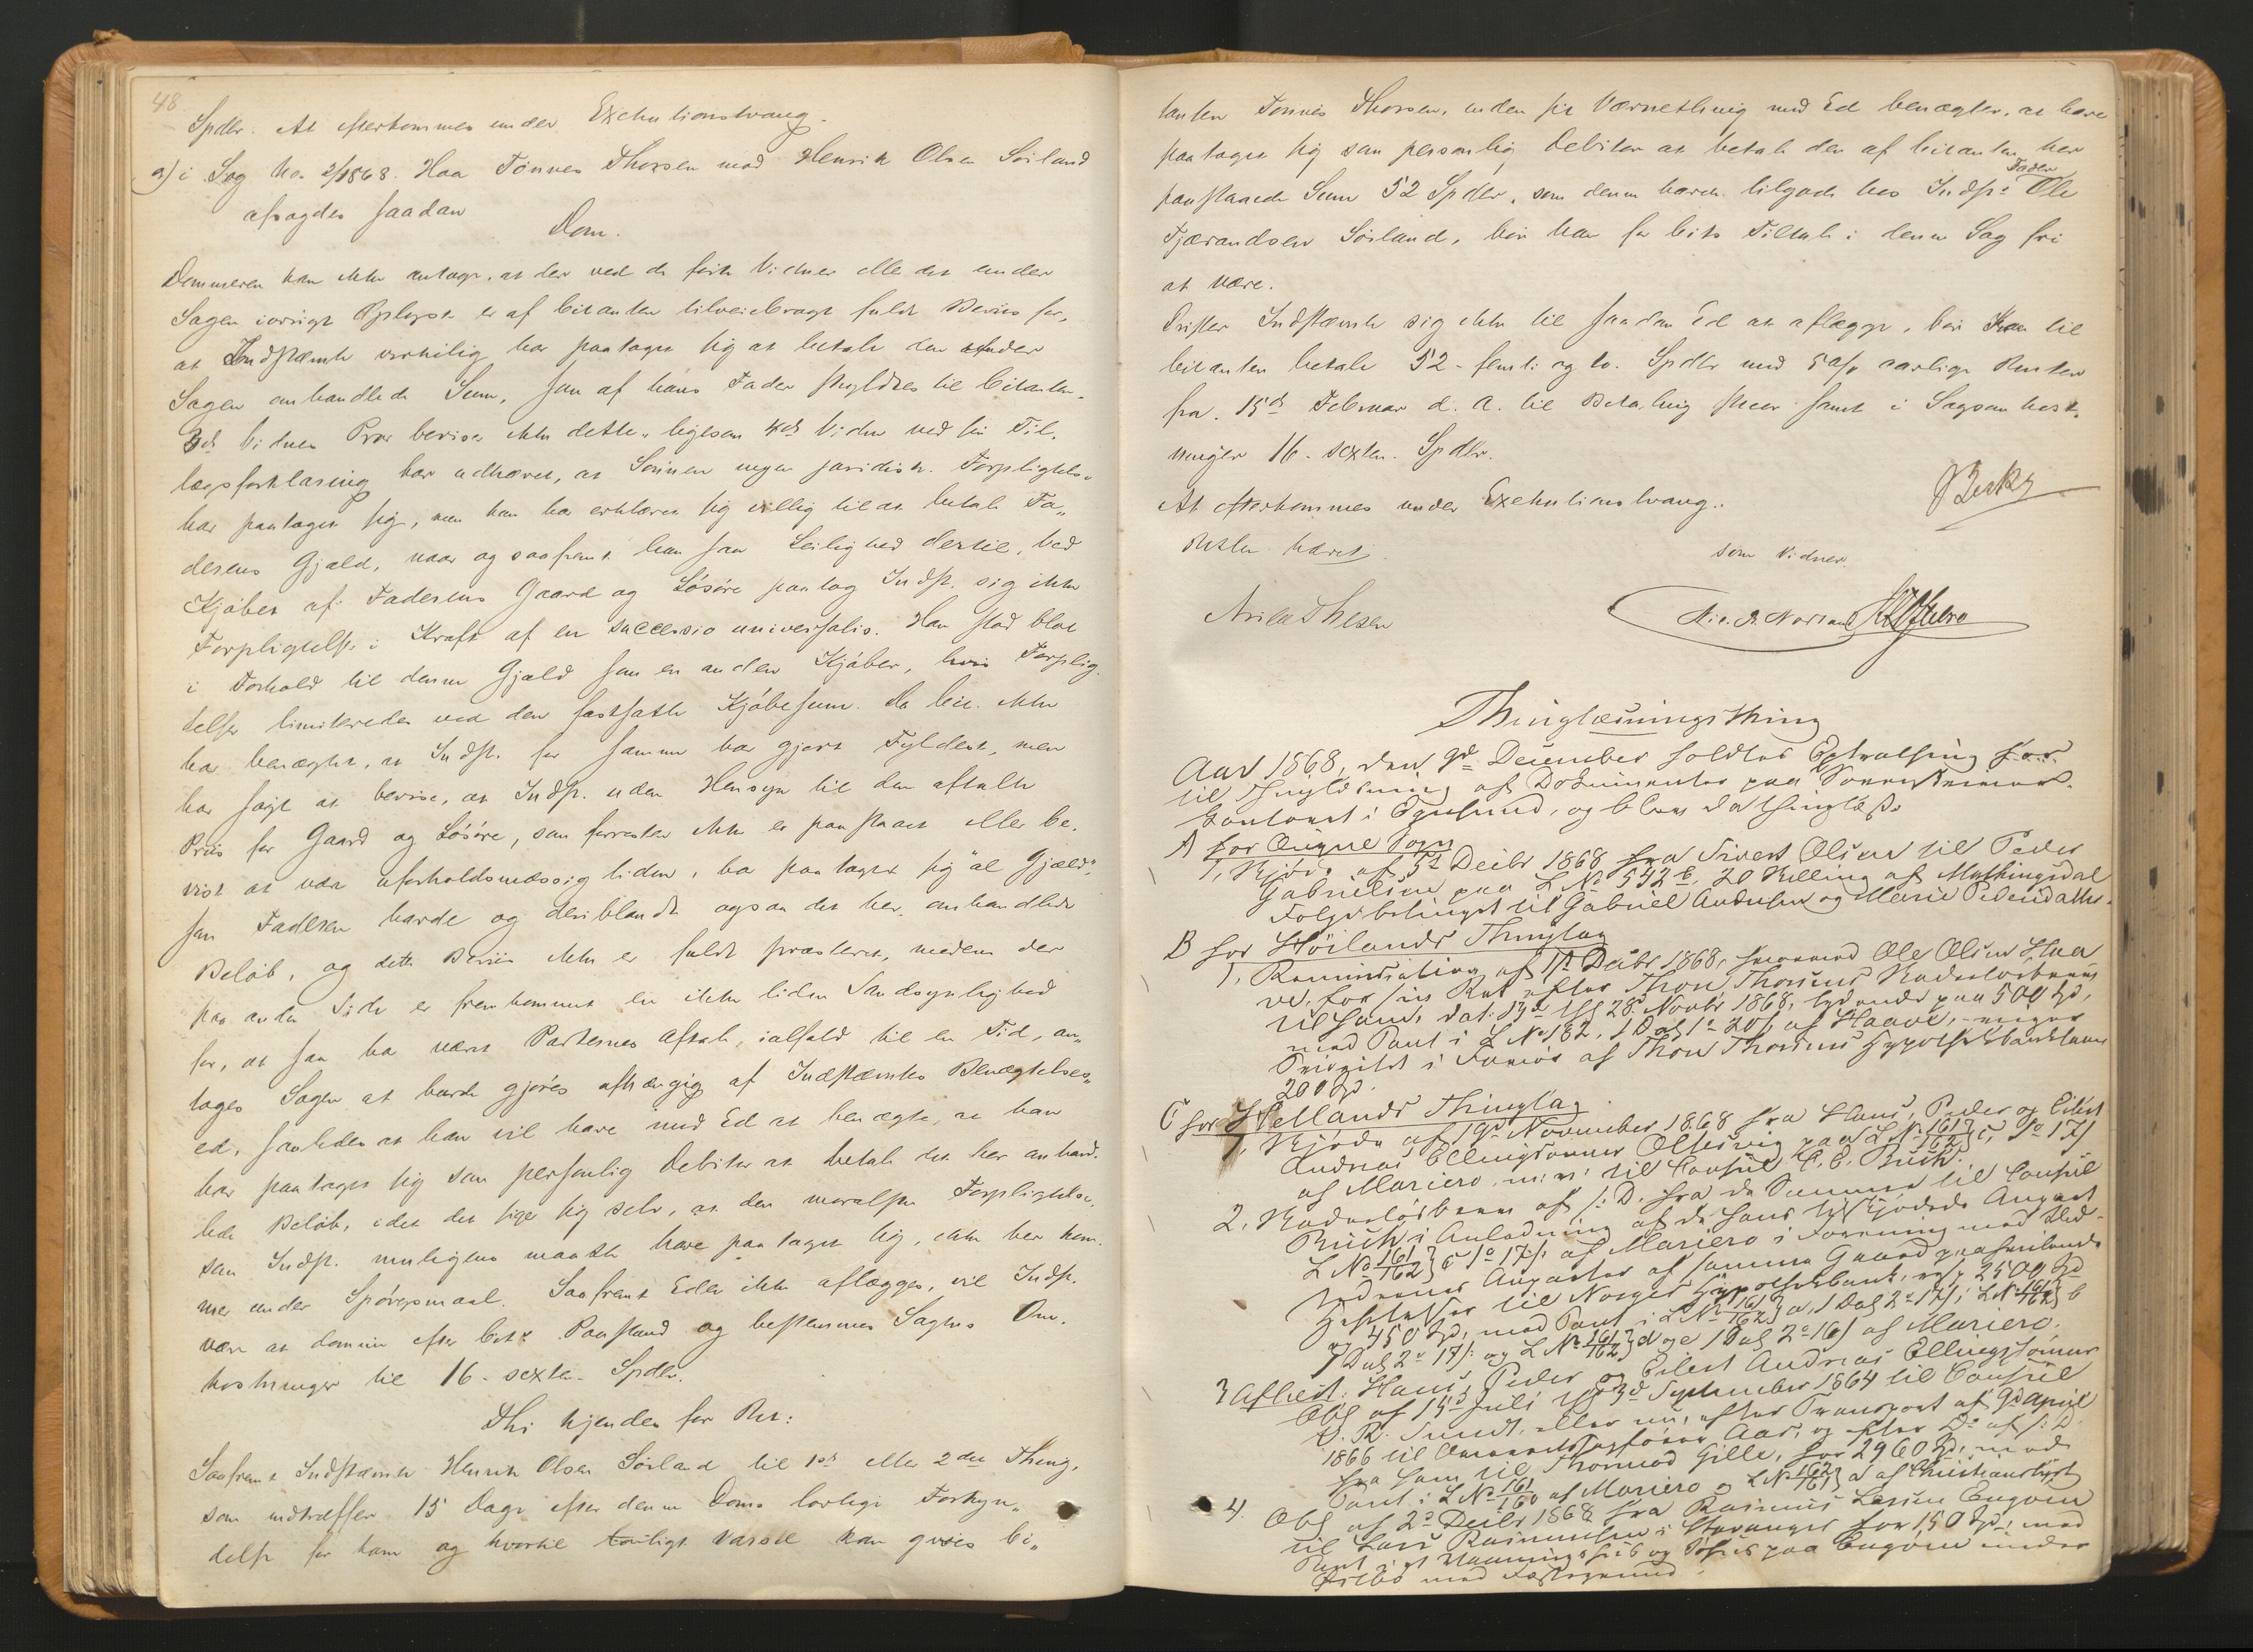 48
Spdlr. At efterkommes under Exekutionstvang.
a) i Sag No. 2/1868. Haa Tönnes Thorsen mod Henrik Olsen Sörland
afsagdes saadan
Dom.
Dommeren kan ikke antage, at der ved de förte Vidner eller det under
Sagen iövrigt Oplyste er af Citanten tilveiebragt fuldt Beviis for,
at Indstævnte virkelig har paataget sig at betale den under
Sagen omhandlede Sum, som af hans Fader skyldtes til Citanten.
3die Vidnes Prov beviser ikke dette, ligesom 4de Vidne ved sin Til-
lægsforklaring har udhævet, at Sönnen ingen juridisk Forpligtelse
har paataget sig, men kun har erklæret sig villig til at betale Fa-
derens Gjæld, naar og saafremt han faar Leilighed dertil. Ved
Kjöbet af Faderens Gaard og Lösöre paatog Indst. sig ikke
Forpligtelse i Kraft af en successio universalis. Han stod blot
i Forhold til denne Gjæld som en anden Kjöber, hvis Forplig-
telse limiteredes ved den fastsatte Kjöbesum. Da Cit. ikke
har benægtet, at Indst. for samme har gjort Fyldest, men
har sögt at bevise, at Indst. uden Hensyn til den aftalte
Priis for Gaard og Lösöre, som forresten ikke er paastaaet eller be-
vist at være uforholdsmæssig liden, har paataget sig "al Gjæld",
som Faderen havde og deriblandt ogsaa det her omhandlede
Belöb, og dette Beviis ikke er fuldt præsteret, medens der
paa anden Side er fremkommet en ikke liden Sandsynlighed
for, at saa har været Parternes Aftale, ialfald til en Tid, an-
tages Sagen at burde gjöres afhængig af Indstævntes Benægtelses-
ed, saaledes at han vil have med Ed at benægte, at han
har paataget sig som personlig Debitor at betale det her omhand-
lede Belöb, idet det siger sig selv, at den moralske Forpligtelse,
som Indst. muligens maatte have paataget sig, ikke her kom-
mer under Spörgsmaal. Saafremt Eden ikke aflægges, vil Indst.
være at dömme efter Cits Paastand og bestemmes Sagens Om-
kostninger til 16 - sexten - Spdlr.
Thi kjendes for Ret:
Saafremt Indstævnte Henrik Olsen Sörland til 1ste eller 2det Thing,
som indtræffer 15 Dage efter denne Doms lovlige Forkyn-
delse for ham og hvortil lovligt Varsel kan gives Ci-
tanten Tönnes Thorsen, inden sit Værnething med Ed benægter, at have
paataget sig som personlig Debitor at betale den af Citanten her
paastaaede Sum 52 Spdlr, som denne havde tilgode hos Indst:s Fader Ole
Tjærandsen Sörland, bör han for Cits Tiltale i denne Sag fri
at være.
Drister Indstævnte sig ikke til saadan Ed at aflægge, bör han til
Citanten betale 52 - femti og to - Spdlr med 5 % aarlige Renter
fra 15de Februar d. A. til Betaling skeer samt i Sagsomkost-
ninger 16 - sexten - Spdlr.
At efterkommes under Exekutionstvang.
Retten hævet.
som Vidner
Thinglæsningsthing
Aar 1868, den 9de December holdtes Extrathing
til Thinglæsning af Dokumenter paa Sorenskriver-
Contoret i Egersund, og blev da thinglæst:
A for Ougne Sogn
1, Skjöde af 5te Decbr 1868 fra Sivert Olsen til Peder
Gabrielsen paa L No 542 b, 20 Skilling af Mathingsdal
Folge betinget til Gabriel Andersen og Marie Pedersdatter.
B for Höilands Thinglag
1, af 1ste Decbr 1868, hvorved Ole Olsen Haa-
ve, for sin Ret efter Thore Thorsens Skadeslösbrev
til ham, dat: 13de thl 28de Novbr 1868, lydende paa 500 Spd,
med Pant i L No 182, 1 Dal 1 20 s af Haave, -
Prioritet i Faveur af Thore Thorsens Hypothekbanklaan
200 Spd.
C for Hetlands Thinglag
1, Skjöde af 19de November 1868 fra Hans, Peder og Eilert
Andreas Ellingsönner paa L No 161/162 c, 17 s
af Mariero m. v. til Consul
2, Skadeslösbrev af s: D. fra de Samme til Consul
i Anledning af de ham
L No 161/162 c 17 s: af Mariero i Forening med
af samme Gaard paahvilende
Heftelser til Norges Hypothekbank, 2500 Spd
og 450 Spd, med Pant i L No 161/162 a, 1 Dal 2 17 s, L No 161/162 b
1 Dal 2 17 s: og L No 161/162 d og e 1 Dal 2 16 s af Mariero.
3 Aflæst: Hans, Peder og Eilert Andreas Ellingsönners
Obl af 15de Juli thl 3de September 1864 til Consul
S. R. Sundt, eller nu, efter Transport af 9de April
1866 til Aar, og efter Do af s: D.
fra ham til Thormod Gille, for 2960 Spd, med
Pant i L No 161/160 af Mariero og L No 162/161 d af Christianslyst
4. Obl af 2de Decbr 1868 fra Rasmus Larsen
til Lars Rasmussen i Stavanger for 150 Spd, med
Pant i et Vaaningshus og paa under
med Fæstegrund.